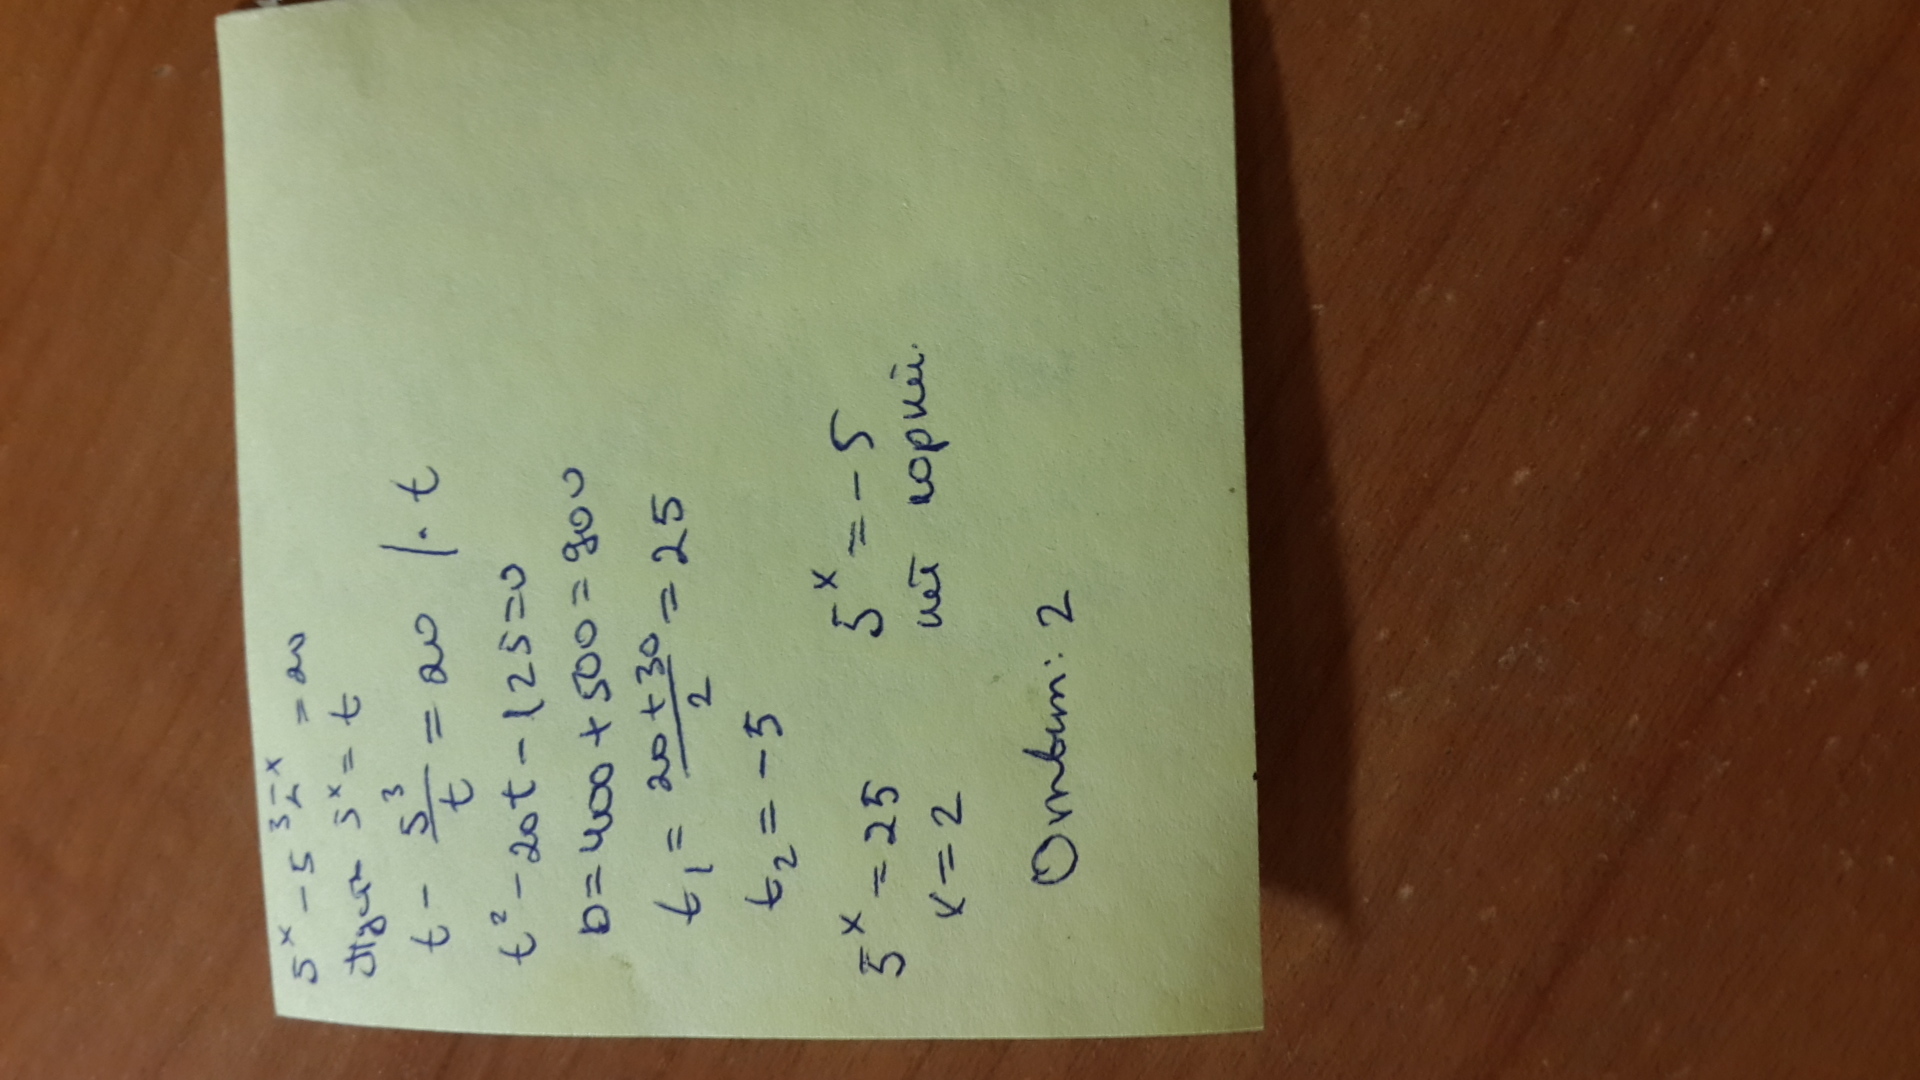 5^x - 5^{3-x} = 20
Пусть 5^x = t
t - 5^3/t = 20 | · t
t^2 - 20t - 125 = 0
D = 400 + 500 = 900
t_1 = (20 + 30)/2 = 25
t_2 = -5
5^x = 25 5^x = -5
x = 2 нет корней.
Ответ: 2